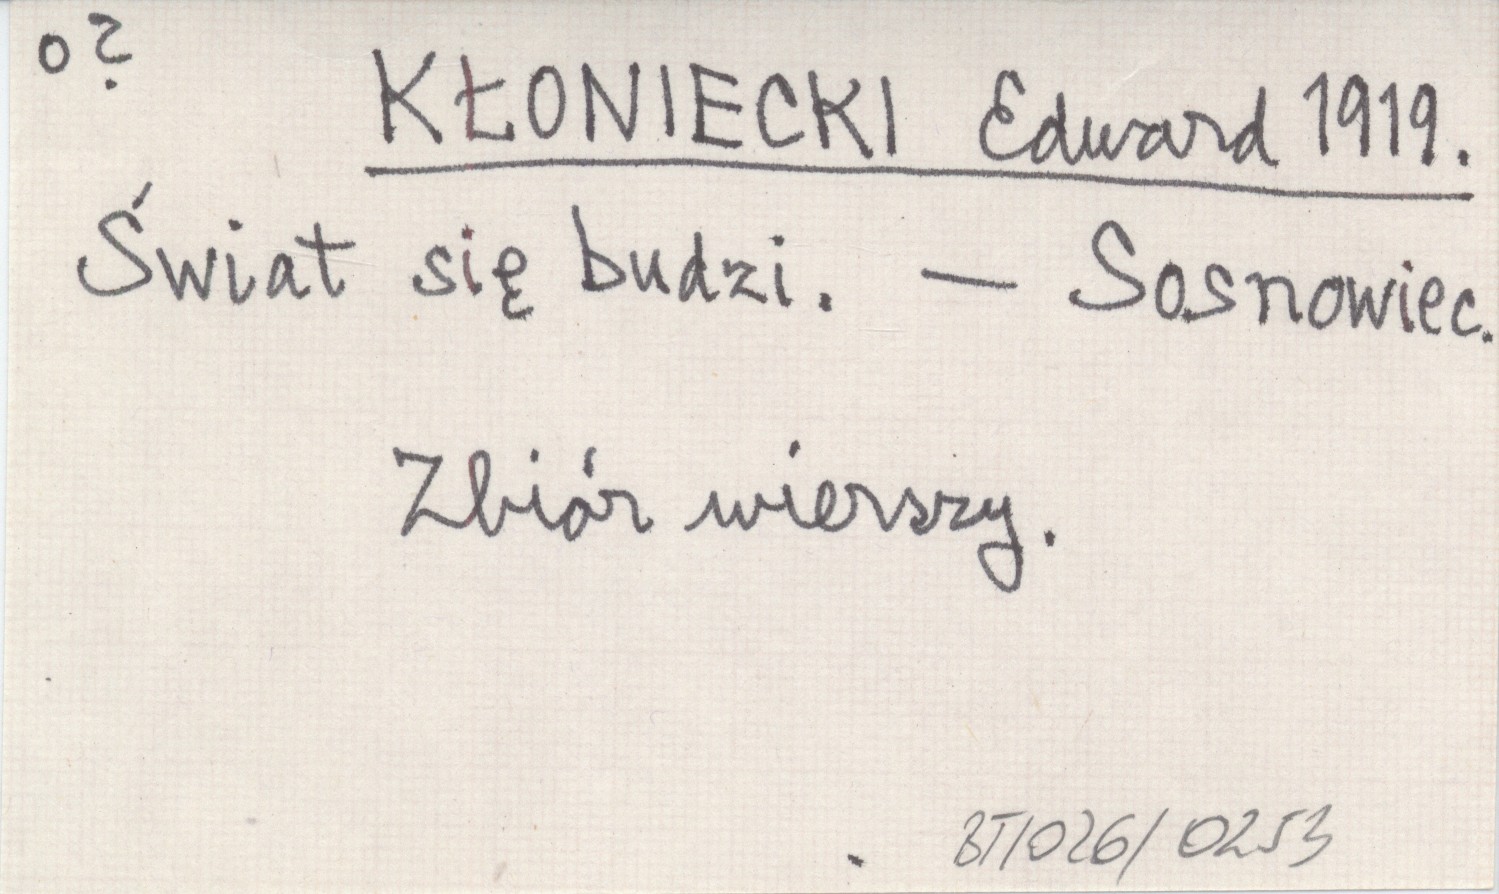 o?
KŁONIECKI Edward 1919.
Świat się budzi. — Sosnowiec.
Zbiór wierszy.
BT/026/0253